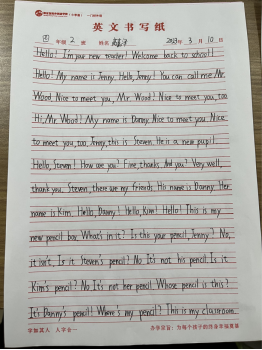 英文书写纸
四 年级 2 班 姓名 2023 年 3 月 10 日
Hello! I'm your new teacher! Welcome back to school!
Hello! My name is Jenny. Hello, Jenny! You can call me Mr.
Wood. Nice to meet you, Mr Wood! Nice to meet you, too.
Hi, Mr Wood! My name is Danny. Nice to meet you. Nice
to meet you, too. Jenny, this is Steven. He is a new pupil.
Hello, Steven! How are you? Fine, thanks. And you? Very well,
thank you. Steven, there are my friends. His name is Danny. Her
name is Kim. Hello, Danny! Hello, Kim! Hello! This is my
new pencil box. What's in it? Is this your pencil, Jenny? No,
it isn't. Is it Steven's pencil? No It's not his pencil. Is it
Kim's pencil? No It's not her pencil. Whose pencil is this?
It's Danny's pencil! Where's my pencil? This is my classroom.